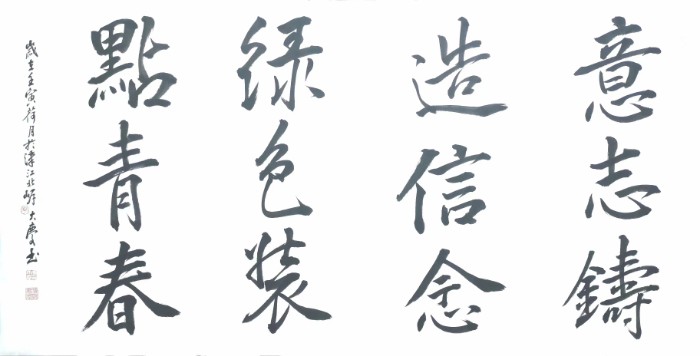 意志鑄
造信念
绿色装
點青春
歲在壬寅荷月於漳江北岸大慶书